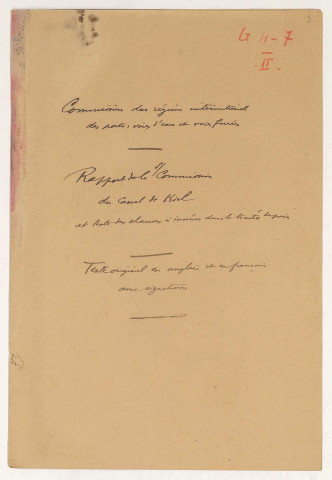 3
G 4-7
II
Commission du régime international
des ports, voies d'eau et voies ferrées
Rapport de la s/Commission
du Canal de Kiel
et texte des clauses à insérer dans le traité de paix
Texte original en anglais et en français
avec signatures